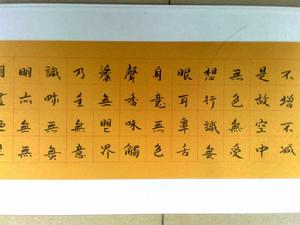 不增不减
是故空中
無色無受
想行識無
眼耳鼻舌
身意無色
聲香味觸
灋無眼界
乃至無意
識畍無無
明亦無無